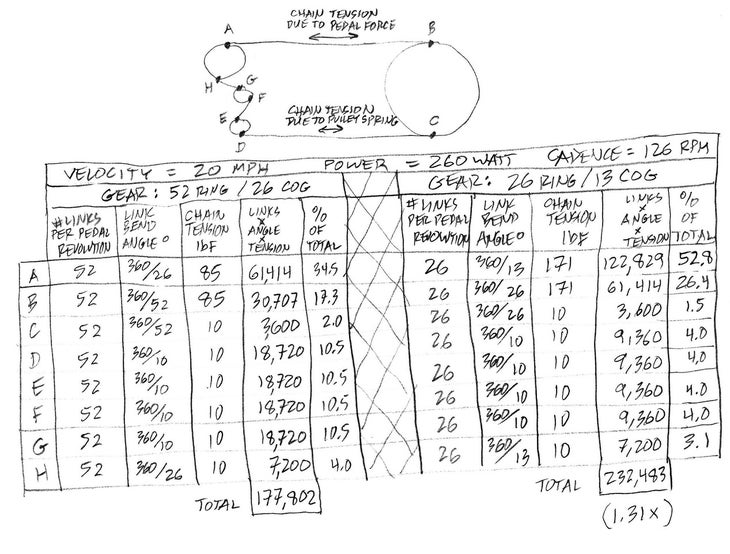 CHAIN TENSION
DUE TO PEDAL FORCE
A
B
H
G
F
E
D
C
CHAIN TENSION
DUE TO PULLEY SPRING
VELOCITY = 20 MPH POWER = 260 WATT CADENCE = 126 RPM
GEAR: 52 RING / 26 COG GEAR: 26 RING / 13 COG
#LINKS PER PEDAL REVOLUTION LINK BEND ANGLE° CHAIN TENSION lbF LINKS x ANGLE x TENSION % OF TOTAL #LINKS PER PEDAL REVOLUTION LINK BEND ANGLE° CHAIN TENSION lbF LINKS x ANGLE x TENSION % OF TOTAL
A 52 360/26 85 61,414 34.5 26 360/13 171 122,829 52.8
B 52 360/52 85 30,707 17.3 26 360/26 171 61,414 26.4
C 52 360/52 10 3,600 2.0 26 360/26 10 3,600 1.5
D 52 360/10 10 18,720 10.5 26 360/10 10 9,360 4.0
E 52 360/10 10 18,720 10.5 26 360/10 10 9,360 4.0
F 52 360/10 10 18,720 10.5 26 360/10 10 9,360 4.0
G 52 360/10 10 18,720 10.5 26 360/10 10 9,360 4.0
H 52 360/26 10 7,200 4.0 26 360/13 10 7,200 3.1
TOTAL 177,802 TOTAL 232,483
(1.31x)